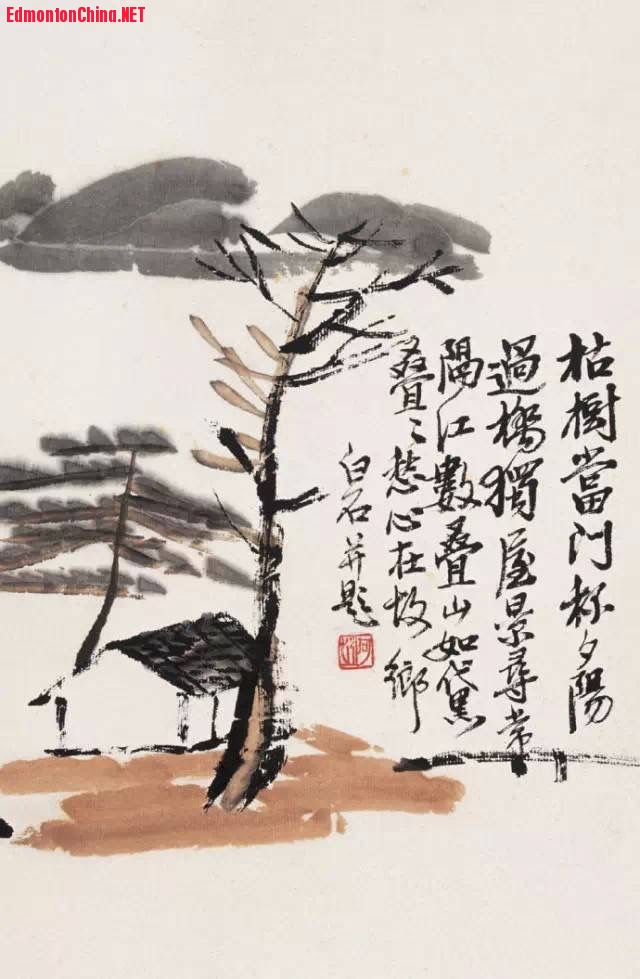 EdmontonChina.NET
枯樹當門夕陽
過橋獨屋景尋常
隔江數疊山如黛
疊疊愁心在故鄉
白石并題
阿芝